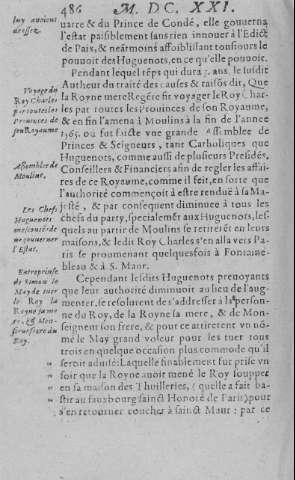 486 M. DC. XXI.
luy auoient
dressez.
uarre & du Prince de Condé, elle gouuerna
l'estat paisiblement sans rien innouer à l'Edict
de Paix, & neãtmoins affoiblissant tousiours le
pouuoit des Huguenots, en ce qu'elle pouuoit.
Pendant lequel tẽps qui dura ans, le susdit
Autheur du traité des causes & raisõs dit, Que
la Royne mere Regẽte fit voyager le Roy Char-
les par toutes les Prouinces de son Royaume,
& en fin l'amena à Moulins à la fin de l'année
1565. où fut faicte vne grande Assemblee de
Princes & Seigneurs, tant Catholiques que
Huguenots, comme aussi de plusieurs Presidẽs,
Conseillers & Financiers afin de regler les affai-
res de ce Royaume, comme il feit, en sorte que
l'authorité commençoit à estre rendue à sa Ma-
jesté, & par consequent diminuee à tous les
chefs du party, specialemẽt aux Huguenots, les-
quels au partir de Moulins se retirerẽt en leurs
maisons, & ledit Roy Charles s'en alla vers Pa-
ris se proumenant quelquesfois à Fontaine-
bleau & à S. Maur.
Voyage du
Roy Charles
par toutes les
Prouinces de
son Royaume
Assemblee de
Moulins.
Les Chefs
Huguenots
gouuerner
l'Estat.
Cependant lesdits Huguenots preuoyants
que leur authorité diminuoit au lieu de l'aug-
menter, se resolurent de s'addresser à la person-
ne du Roy, de la Royne sa mere, & de Mon-
seigneur son frere, & pour ce attirerent vn nõ-
mé le May grand voleur pour les tuer tous
trois en quelque occasion plus commode qu'il
seroit aduisé: Laquelle finablement fut prise vn
soir que la Royne auoit mené le Roy soupper
en sa maison des Thuilleries, (quelle a fait ba-
stir au fauxbourg sainct Honoré de Paris) pour
s'en retourner coucher à sainct Maur: par ce
Entreprinse
de
May de tuer
le Roy la
Royne sa me
re, & Mon-
sieur frere du
Roy.